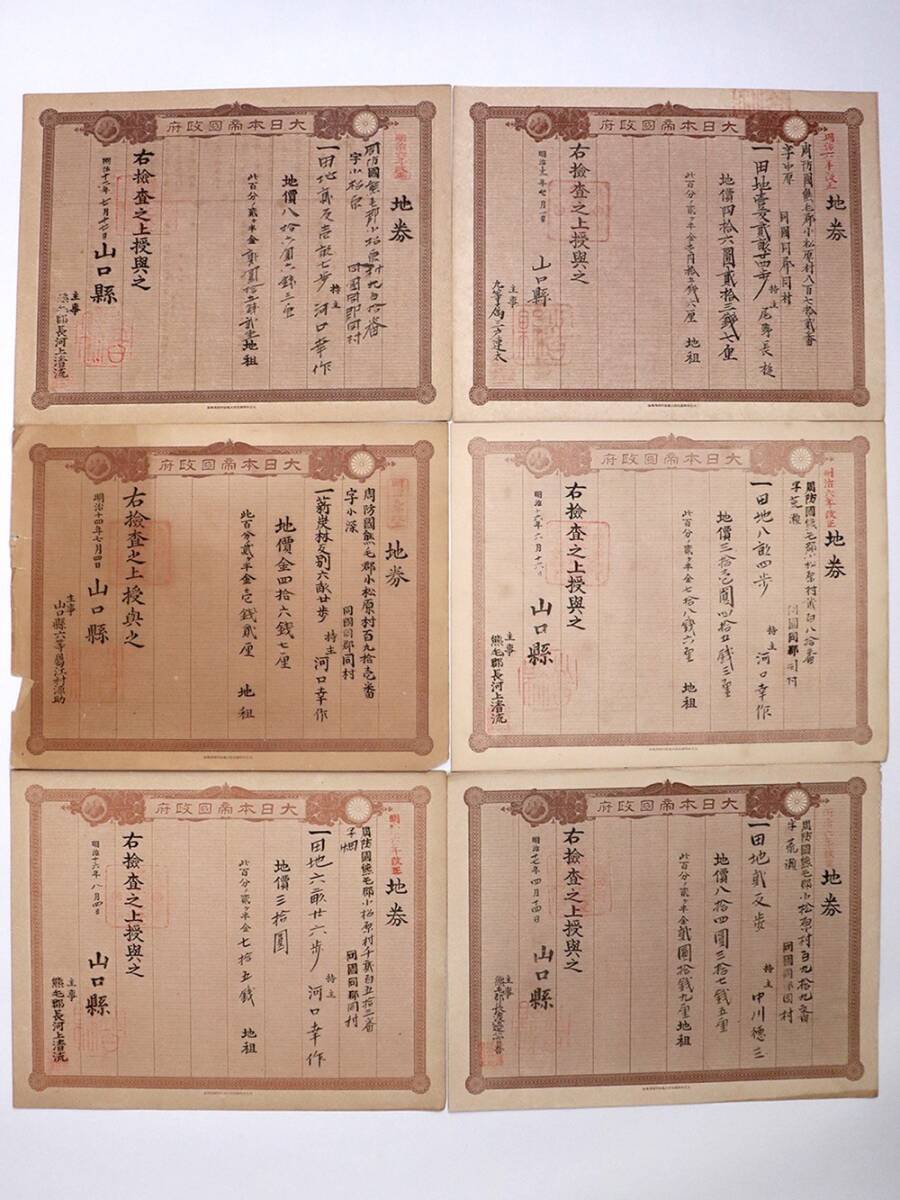 府政國帝本日大
地券
周防國熊毛郡小松原村
字小松原
同國同郡同村
一田地貳反壱畝七歩
持主 河口幸作
地價八拾六圓六錢三厘
此百分ノ貳ヶ半金貳圓
地租
右撿査之上授與之
七月十七日
山口縣
主事
熊毛郡長河上渚流
府政國帝本日大
明治六年改正
地券
周防國熊毛郡小松原村八百七拾貳番
同國同郡同村
一田地壹反貳畝廿四歩
持主
地價四拾六圓貳拾三錢七厘
此百分ノ貳ヶ半金
地租
右撿査之上授與之
山口縣
主事
府政國帝本日大
地券
周防國熊毛郡小松原村百九拾壱番
字小深
同國同郡同村
一薪炭林反別六畝廿歩
持主 河口幸作
地價金四拾六錢七厘
此百分ノ貳ヶ半金壱錢貳厘
地租
右撿査之上授與之
明治十四年七月四日
山口縣
主事
山口縣六等屬江村源助
府政國帝本日大
明治六年改正
地券
周防國熊毛郡小松原村貳百八拾番
字芝灘
同國同郡同村
一田地八畝四歩
持主 河口幸作
地價三拾壱圓四拾五錢三厘
此百分ノ貳ヶ半金七拾八錢六厘
地租
右撿査之上授與之
明治十六年六月十六日
山口縣
主事
熊毛郡長河上渚流
府政國帝本日大
地券
周防國熊毛郡小松原村千貳百五拾二番
字畑
同國同郡同村
一田地六畝廿六歩
持主 河口幸作
地價三拾圓
此百分ノ貳ヶ半金七拾五錢
地租
右撿査之上授與之
明治十六年八月四日
山口縣
主事
熊毛郡長河上渚流
府政國帝本日大
地券
周防國熊毛郡小松原村百九拾九番
同國同郡同村
一田地貳反歩
持主 中川德三
地價八拾四圓三拾七錢五厘
此百分ノ貳ヶ半金貳圓拾錢九厘
地租
右撿査之上授與之
明治十七年四月十四日
山口縣
主事